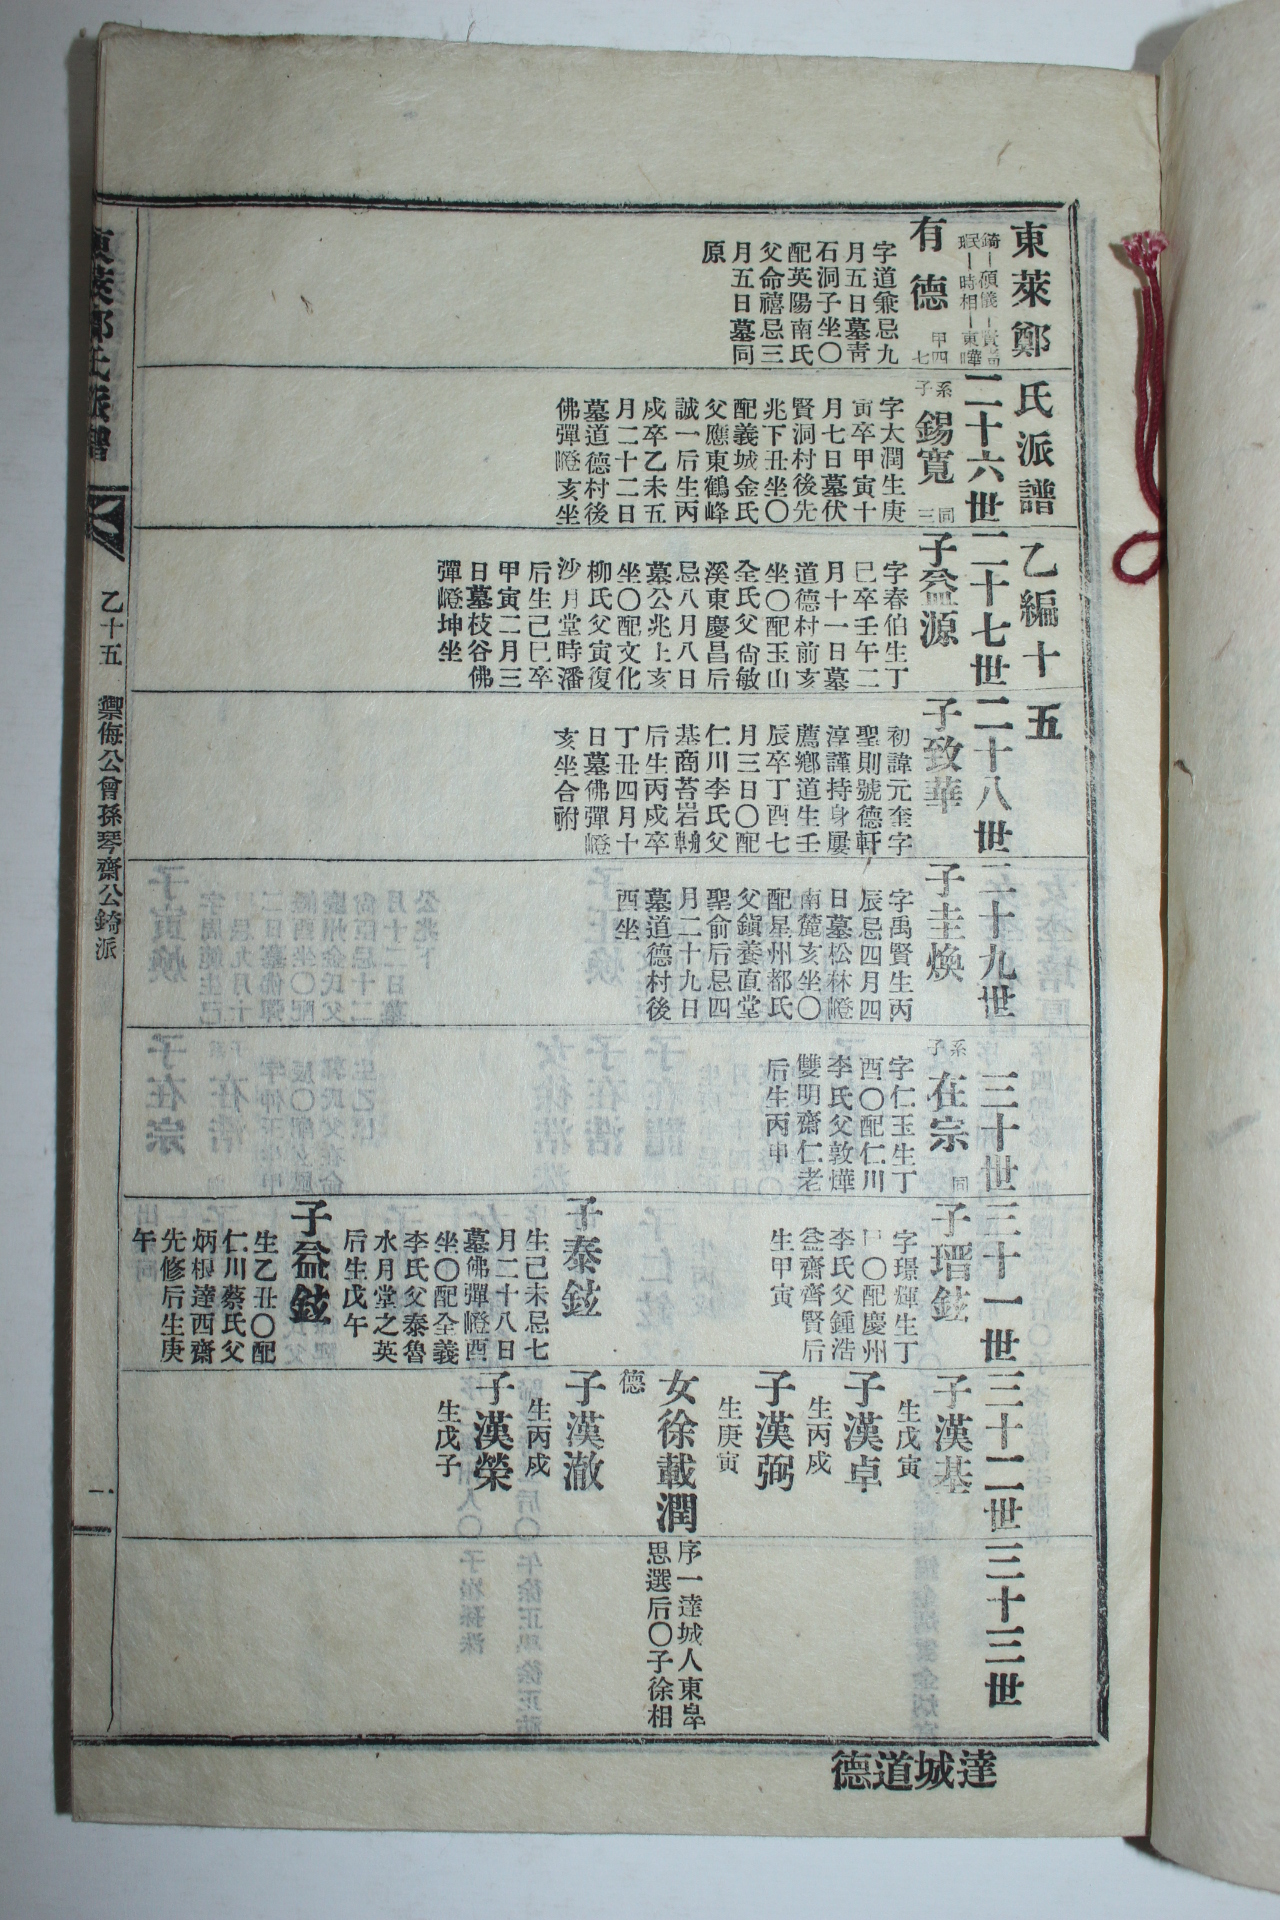 東萊鄭氏派譜 乙編十五
二十六世
二十七世
二十八世
二十九世
三十世
三十一世
三十二世
三十三世
有德
甲四
七
字道兼忌九
月五日墓靑
石洞子坐〇
配英陽南氏
父命禧忌三
月五日墓同
原
系子
錫寬
同三
字太潤生庚
寅卒甲寅十
月七日墓伏
賢洞村後先
兆下丑坐〇
配義城金氏
父應東鶴峰
誠一后生丙
戌卒乙未五
月二十二日
墓道德村後
佛彈嶝亥坐
子益源
字春伯生丁
巳卒壬午二
月十一日墓
道德村前亥
坐〇配玉山
全氏父尙敏
溪東慶昌后
忌八月八日
墓公兆上亥
坐〇配文化
柳氏父寅復
沙月堂時潘
后生己巳卒
甲寅二月三
日墓枝谷佛
彈嶝坤坐
子致華
初諱元奎字
聖則號德軒
淳謹持身屢
薦鄕道生壬
辰卒丁酉七
月三日〇配
仁川李氏父
基商苔岩
后生丙戌卒
丁丑四月十
日墓佛彈嶝
亥坐合祔
子圭煥
字禹賢生丙
辰忌四月四
日墓松林嶝
南麓亥坐〇
配星州都氏
父鎭養直堂
聖俞后忌四
月二十九日
墓道德村後
酉坐
系子
在宗
同
字仁玉生丁
酉〇配仁川
李氏父敦燁
雙明齋仁老
后生丙申
子瑨鉉
字璟輝生丁
〇配慶州
李氏父鍾浩
益齋齊賢后
生甲寅
子泰鉉
生己未忌七
月二十八日
墓佛彈嶝酉
坐〇配全義
李氏父泰魯
水月堂之英
后生戊午
子益鉉
生乙丑〇配
仁川蔡氏父
炳根達西齋
先修后生庚
午
子漢基
生戊寅
子漢卓
生丙戌
子漢弼
生庚寅
女徐載潤
德
子漢澈
生丙戌
子漢榮
生戊子
序一達城人東皐
思選后〇子徐相
達城道德
東萊鄭氏派譜
乙十五
禦侮公曾孫琴齋公錡派
一